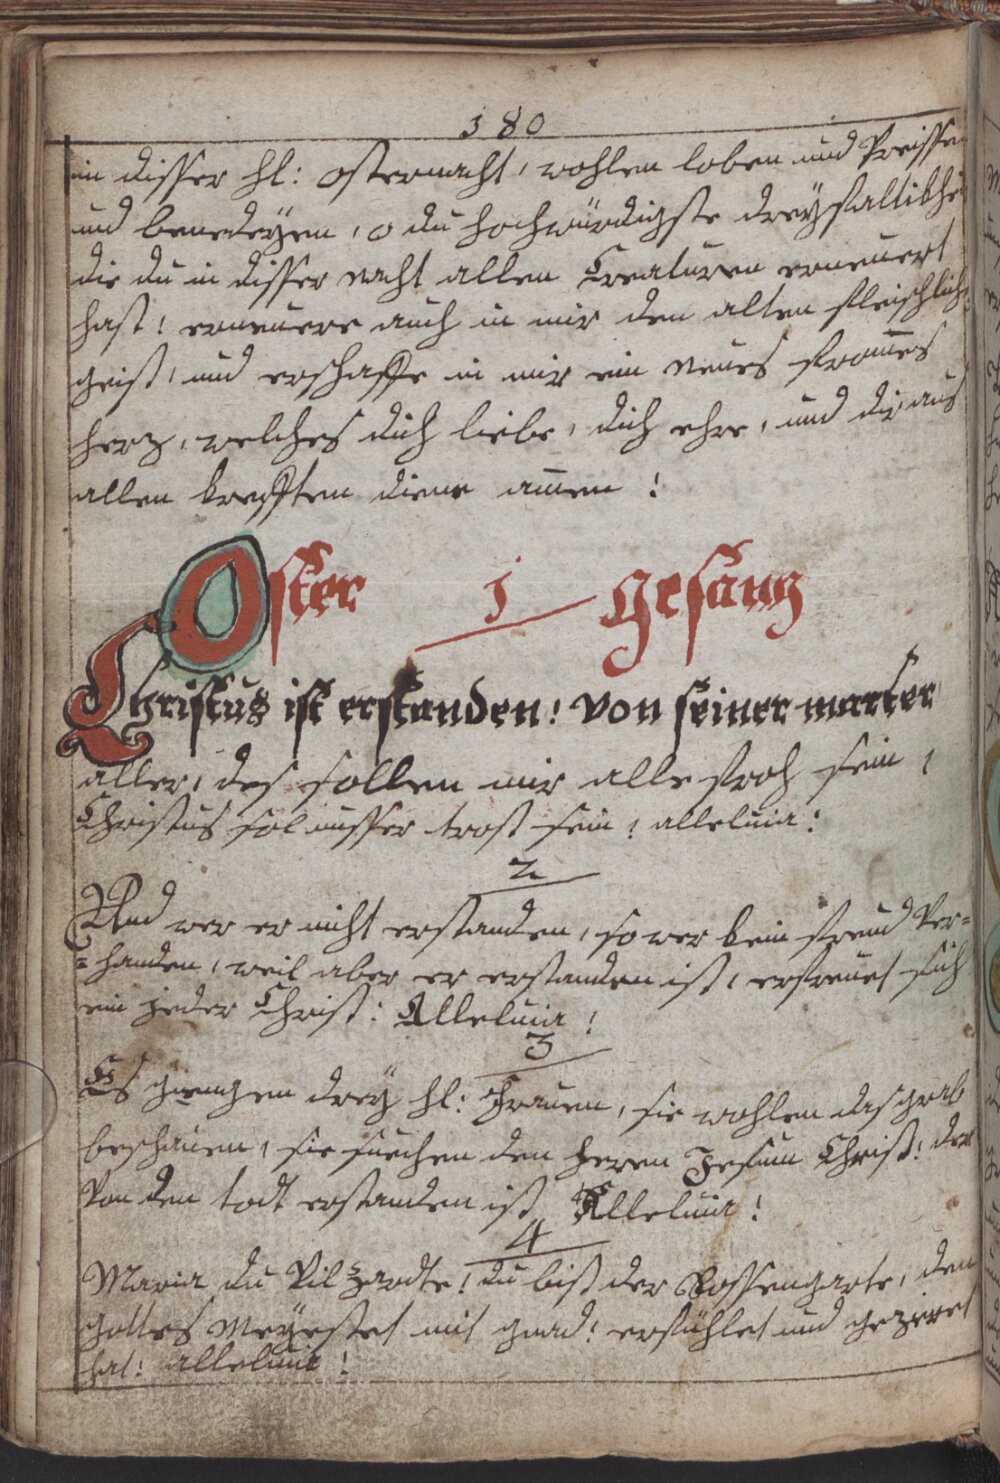 380
in disser hl: osternacht, wohlen loben und Preissen
und benedeyen, o du hochwürdigste dreyfaltikhei
die du in disser nacht allen Creaturen erneuert
hast! erneuere auch in mir den alten fleischlich
geist, und erschaffe in mir ein neues fromes
herz, welches dich liebe, dich ehre, und dir aus
allen krefften diene amen!
Oster 1 gesang
Christus ist erstanden! von seiner marter
aller, des sollen mir alle froh sein,
Christus sol unsser trost sein, alleluia:
2
Und wer er nicht erstanden, so wer kein freud Ver=
=handen, weil aber er erstanden ist, erfreuet sich
ein jeder Christ: Alleluia!
3
Es giengen drey hl: Frauen, sie wohlen das grab
beschauen, sie suechen den herrn Jesum Christ: der
Von den todt erstanden ist, Alleluia!
4
Maria du Vil zardte! du bist der Rossengarte, den
gottes Meyestet mit gnad: erfühlet und gezieret
hat: alleluia!